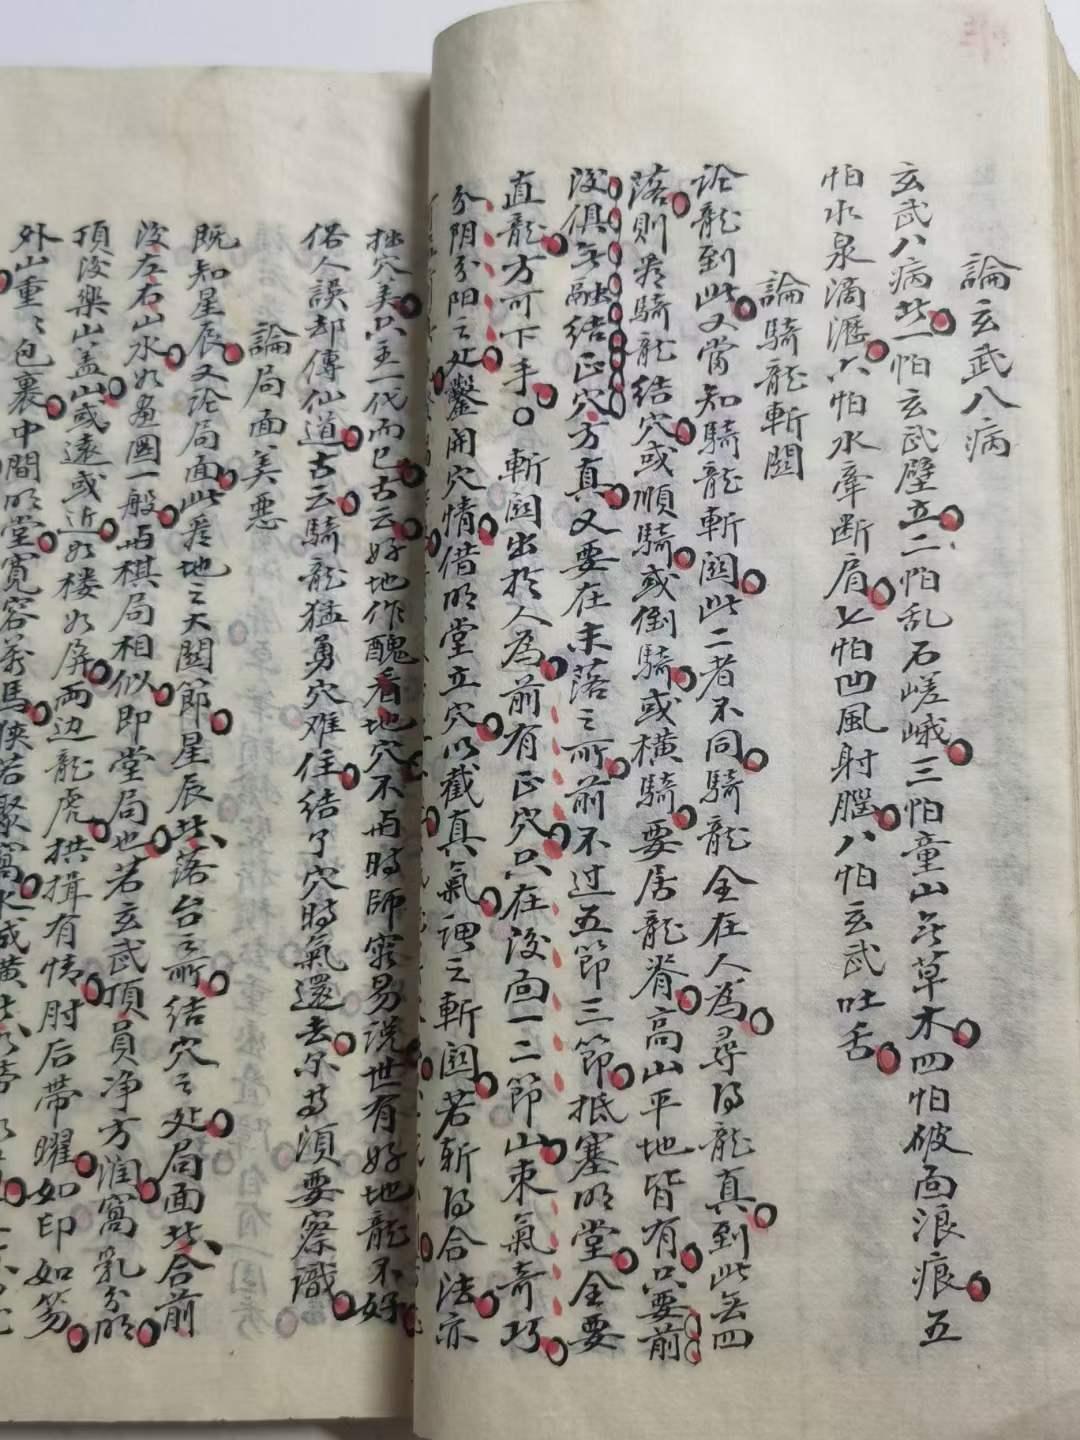 論玄武八病
玄武八病者一怕玄武壁立二怕乱石嵯峨三怕童山无草木四怕破面浪痕五
怕水泉滴瀝六怕水牽断肩七怕凹風射腦八怕玄武吐舌
論騎龍斬關
论龍到此又當知騎龍斬関此二者不同騎龍全在人為尋得龍真到此無四
落則为騎龍結穴或順騎或倒騎或橫騎要居龍脊高山平地皆有只要前
後俱無融結正穴方真又要在未落之所前不过五節三節抵塞明堂全要
直龍方可下手〇斬関出於人為前有正穴只在後面一二節山束氣奇巧
分阴分阳之处鑿開穴情借明堂立穴以截真氣谓之斬関若斬得合法亦
拙穴美只主一代而已古云好地作醜看地穴不与時師容易说世有好地龍不好
俗人誤却傳仙道古云騎龍猛勇穴难住結了穴時氣還去尔等須要察識
論局面美悪
既知星辰又论局面此是地之大関節星辰者落台之所結穴之处局面者合前
後左右山水如畫圖一般与棋局相似即堂局也若玄武頂員净方潤窩乳分明
頂後樂山盖山或遠或近如楼如屏两边龍虎拱揖有情肘后带曜如印如笏
外山重々包裹中間明堂寬容萬馬狭若聚窩